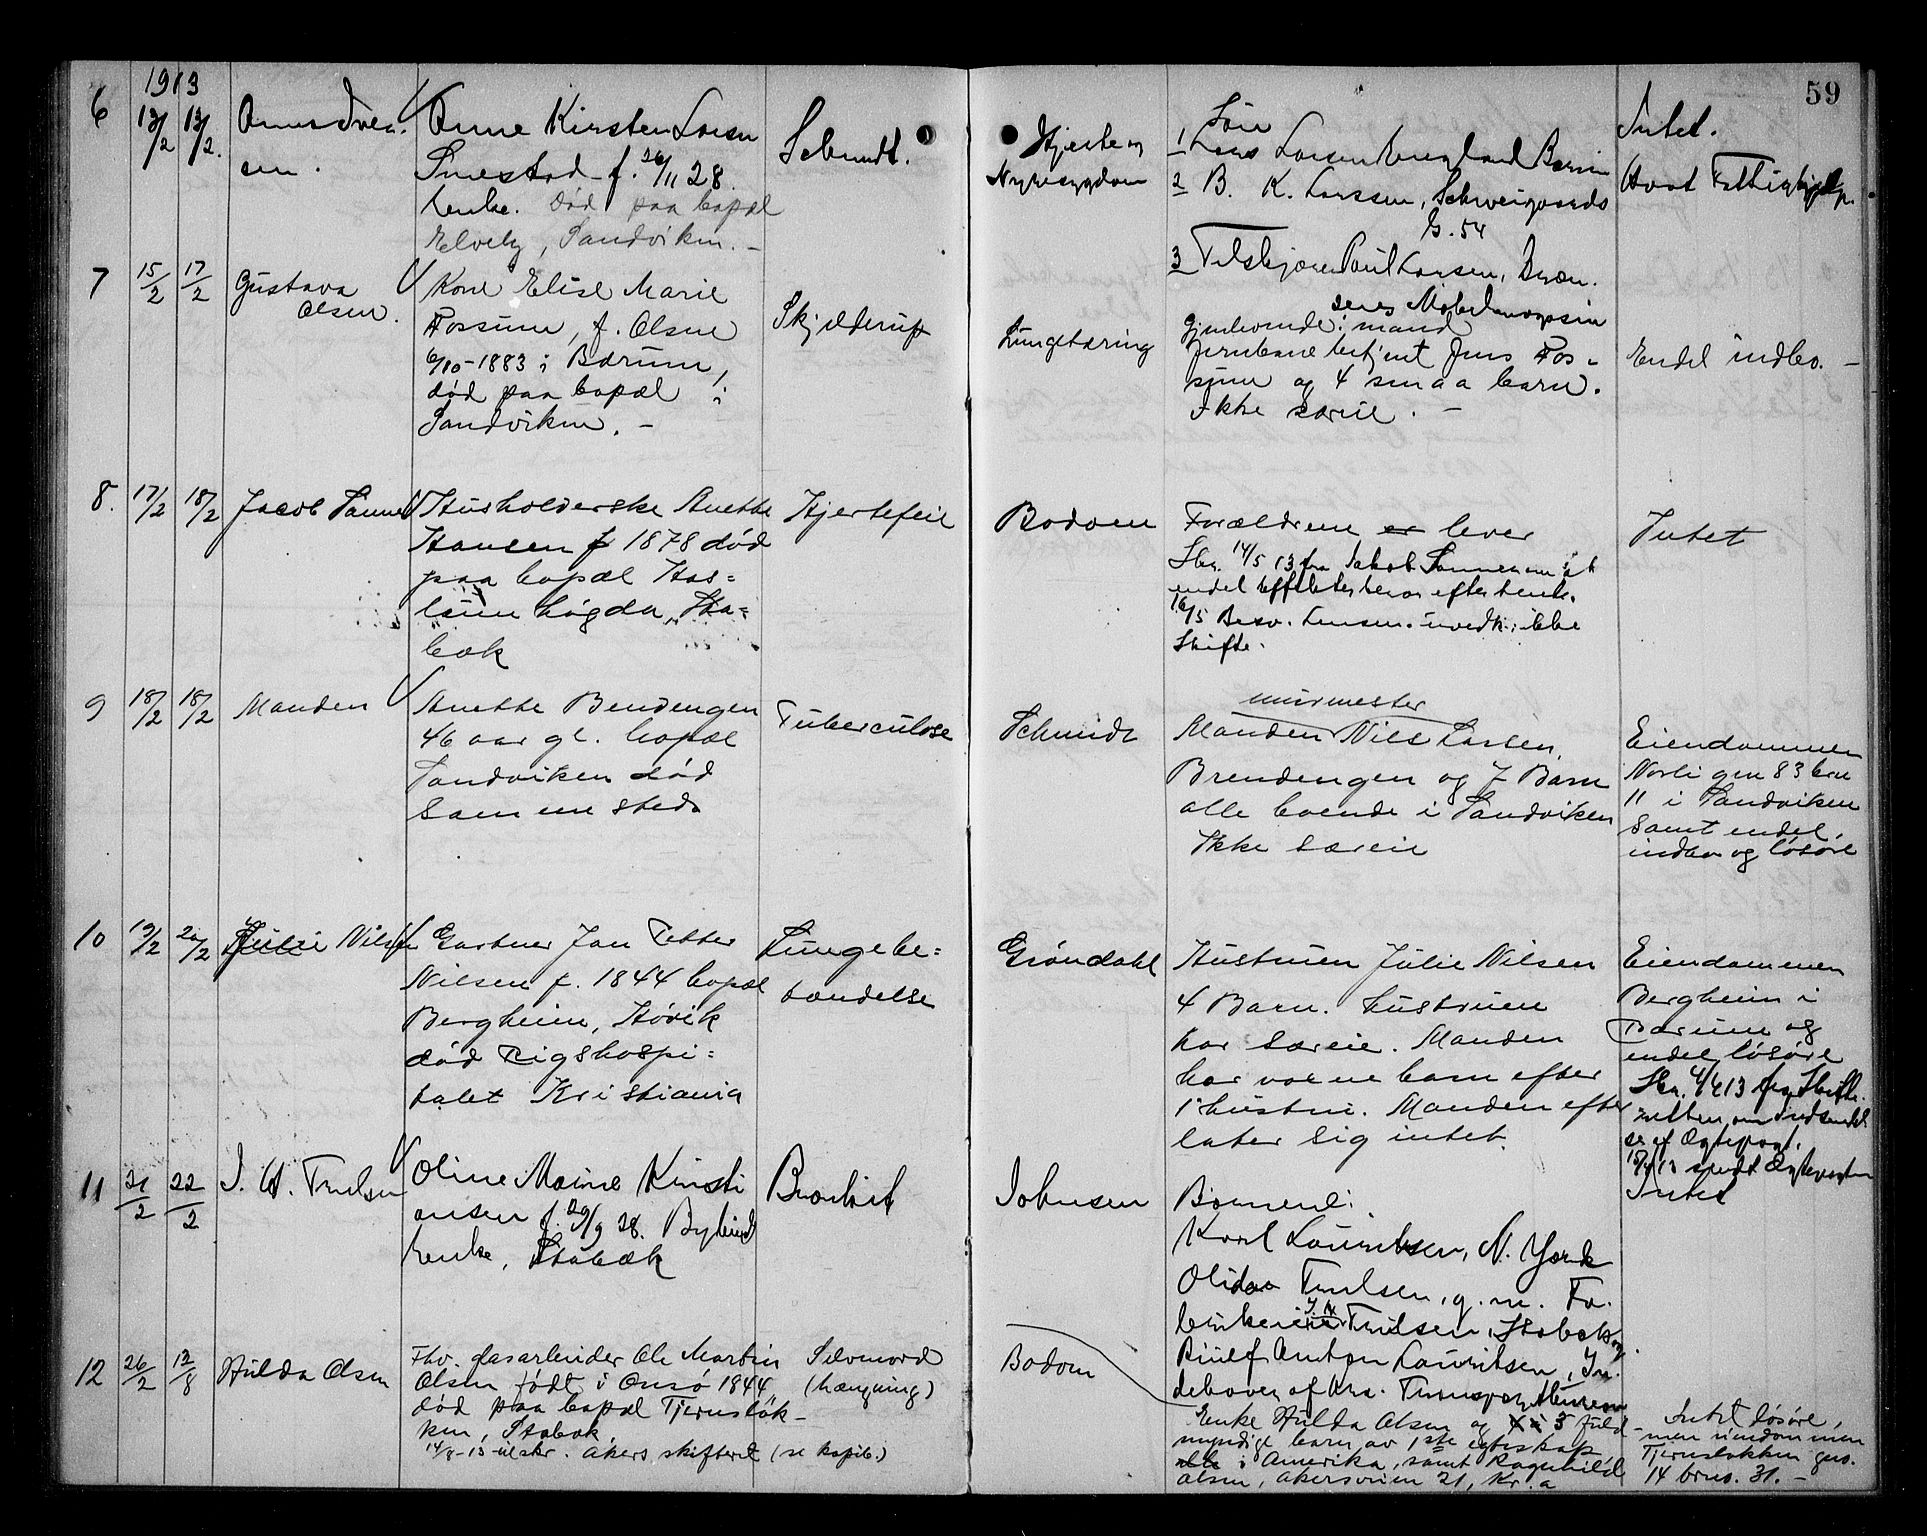 59
1913
6 13/2 13/2.
Anne Kirsten Larsen
Snestad f. 26/11 28.
enke. Død paa bopæl
Elvely, Sandviken. -
Schmidt.
Hjerte og
Nyresygdom
1 Lars Larsen England Bærum
2 B. K. Larssen, Schweigaards
G. 54
3 Paul Larsen,
senes Møbelmagasin
Intet.
Fattighjelp.
7 15/2 17/2 Gustava
Olsen.
Kone Elise Marie
Fossum, f. Olsen
6/10-1883 i Bærum,
død paa bopæl i
Sandviken. -
Skjelderup
Lungetæring
Gjenlevende: mand
jernbanebetjent Jens Fos-
sum og 4 smaa barn.
Ikke særeie. -
Endel indbo. -
8. 17/2 18/2 Jacob Sanne
Husholderske Anette
Hansen f 1878 død
paa bopæl Has=
lum høgda, Sta=
bæk
Hjertefeil
Bodom
Forældrene er lever
Skr. 14/5 13 fra Jakob Sannes om at
endel effekter bero efter henh.
16/5 Besv. Lensm. uvedk. ikke
Skifte.
Intet
9 18/2 18/2 Manden
Anette Bendengen
46 aar gl. bopæl
Sandviken død
samme sted
Tuberculose
Schmidt
murmester
Manden Nils Larsen
Brendengen og 7 Barn
alle boende i Sandviken
Ikke særeie
Eiendommen
Norli gn 83 bn
11 i Sandviken
samt endel
indbo og løsøre
10 19/2 20/2 Julie Nilsen
Gartner Jan Petter
Nilsen f. 1844 bopæl
Bergheim, Høvik
død Rigshospi=
talet Kristiania
Lungebe=
tændelse
Grøndahl
Hustruen Julie Nilsen
4 Barn. Hustruen
har særeie. Manden
har voxne barn efter
1ste hustru. Manden efter
later sig intet.
Eiendommen
Bergheim i
Bærum og
endel løsøre
Skr. 4/4 13 fra Skifte-
retten om indsendel
se af Ægtepagt.
15/4 13 sendt Ægtepagten
11 21/2 22/2 I. A. Trulsen
Oline Marie Kristi
ansen f. 29/9 28.
Enke, Stabæk
Bronkit
Johnsen
Børnene:
Karl Lauritsen, N. York
Olida Trulsen, g. m. Fa.
brikeier I. A. Trulsen, Stabæk og
Anton Lauritsen, In.
dehaver af Kra. Transportbureau
Intet
12 26/2 12/8 Hulda Olsen
Fhv. Gasarbeider Ole Martin
Olsen født i Onsø 1844
død paa bopæl Tjernsløk-
ken, Stabæk
14/8-13 utskr. Akers skifterett (se kopib.)
Selvmord
(hængning)
Bodom
Enke Hulda Olsen og 3 fuld-
myndige barn av 1ste egteskap
alle i Amerika, samt Ragnhild
Olsen, Akersveien 21, Kr.a
Intet løsøre,
men eiendommen
Tjernsløkken gno.
14 brno. 31. -